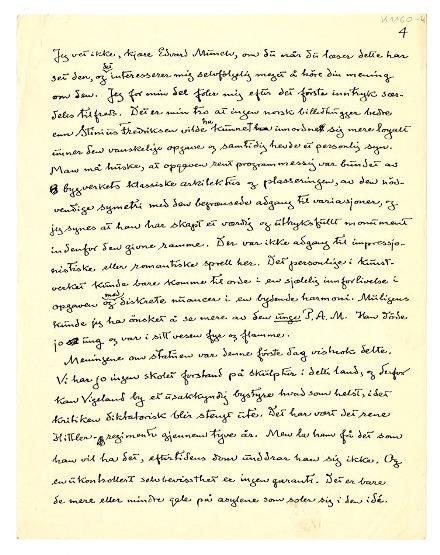 K1160-4
4
Jeg vet ikke, kjære Edvard Munch, om du når du læser dette har
set den, og det interesserer mig selvfølgelig meget å høre din mening
om den. Jeg for min del føler mig efter det første inntrykk sær-
deles tilfreds. Det er min tro at ingen norsk billedhugger bedre
enn Stinius Fredriksen vilde ha kunnet innordnet sig mere loyalt
unner den vanskelige opgave og samtidig hevdet et personlig syn.
Man må huske, at opgaven rent programmessig var bundet av
bygverkets klassiske arkitektur og plasseringen, av den nød-
vendige symetri med den begrænsede adgang til variasjoner, og
jeg synes at han har skapt et værdig og uttrykksfullt monument
indenfor den givne ramme. Der var ikke adgang til impressjo-
nistiske, eller romantiske sprell her. Det personlige i kunst-
verket kunde bare komme til orde i en sjælelig innforlivelse i
opgaven med og diskrete nuancer i en bydende harmoni. Muligens
kunde jeg ha ønsket å se mere av den unge P. A. M. Han døde
jo ung og var i sitt vesen fyr og flamme.
Meningene om statuen var denne første dag visstnok delte.
Vi har jo ingen skolet forstand på skulptur i dette land, og derfor
kan Vigeland by et usakkyndig bystyre hvad som helst, idet
kritikken diktatorisk blir stengt ute. Det har vært det rene
Hittler-regimente gjennem tyve år. Men la ham få det som
han vil ha det, eftertidens dom unddrar han sig ikke. Og
en ukontrollert selvbevissthet er ingen garanti. Det er bare
de mere eller mindre gale på asylene som soler sig i den idé.